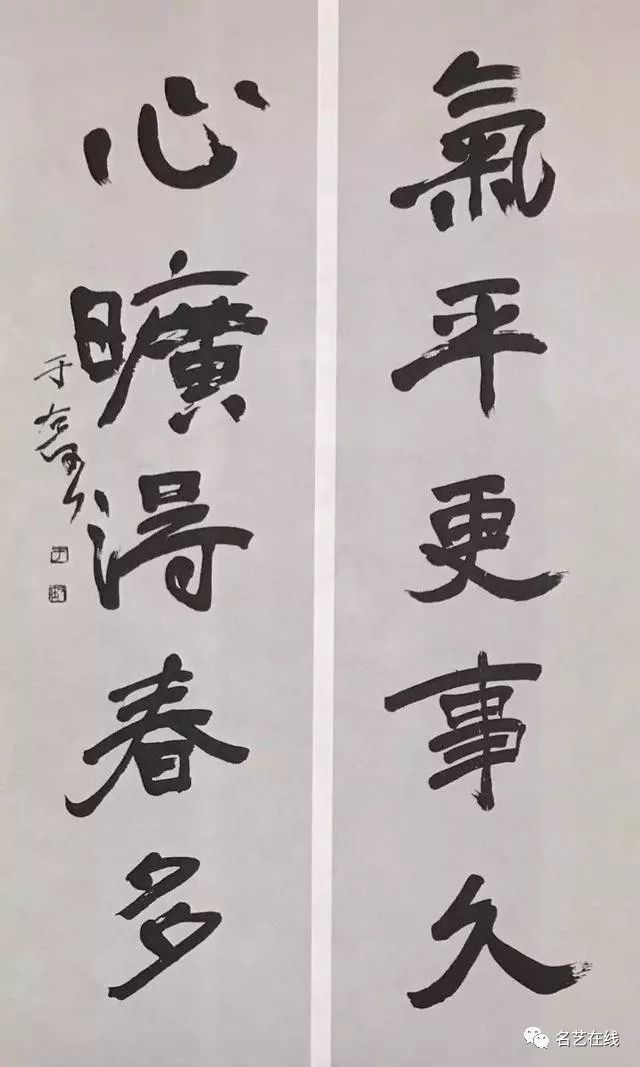 氣平更事久
心曠得春多
于右任
名艺在线